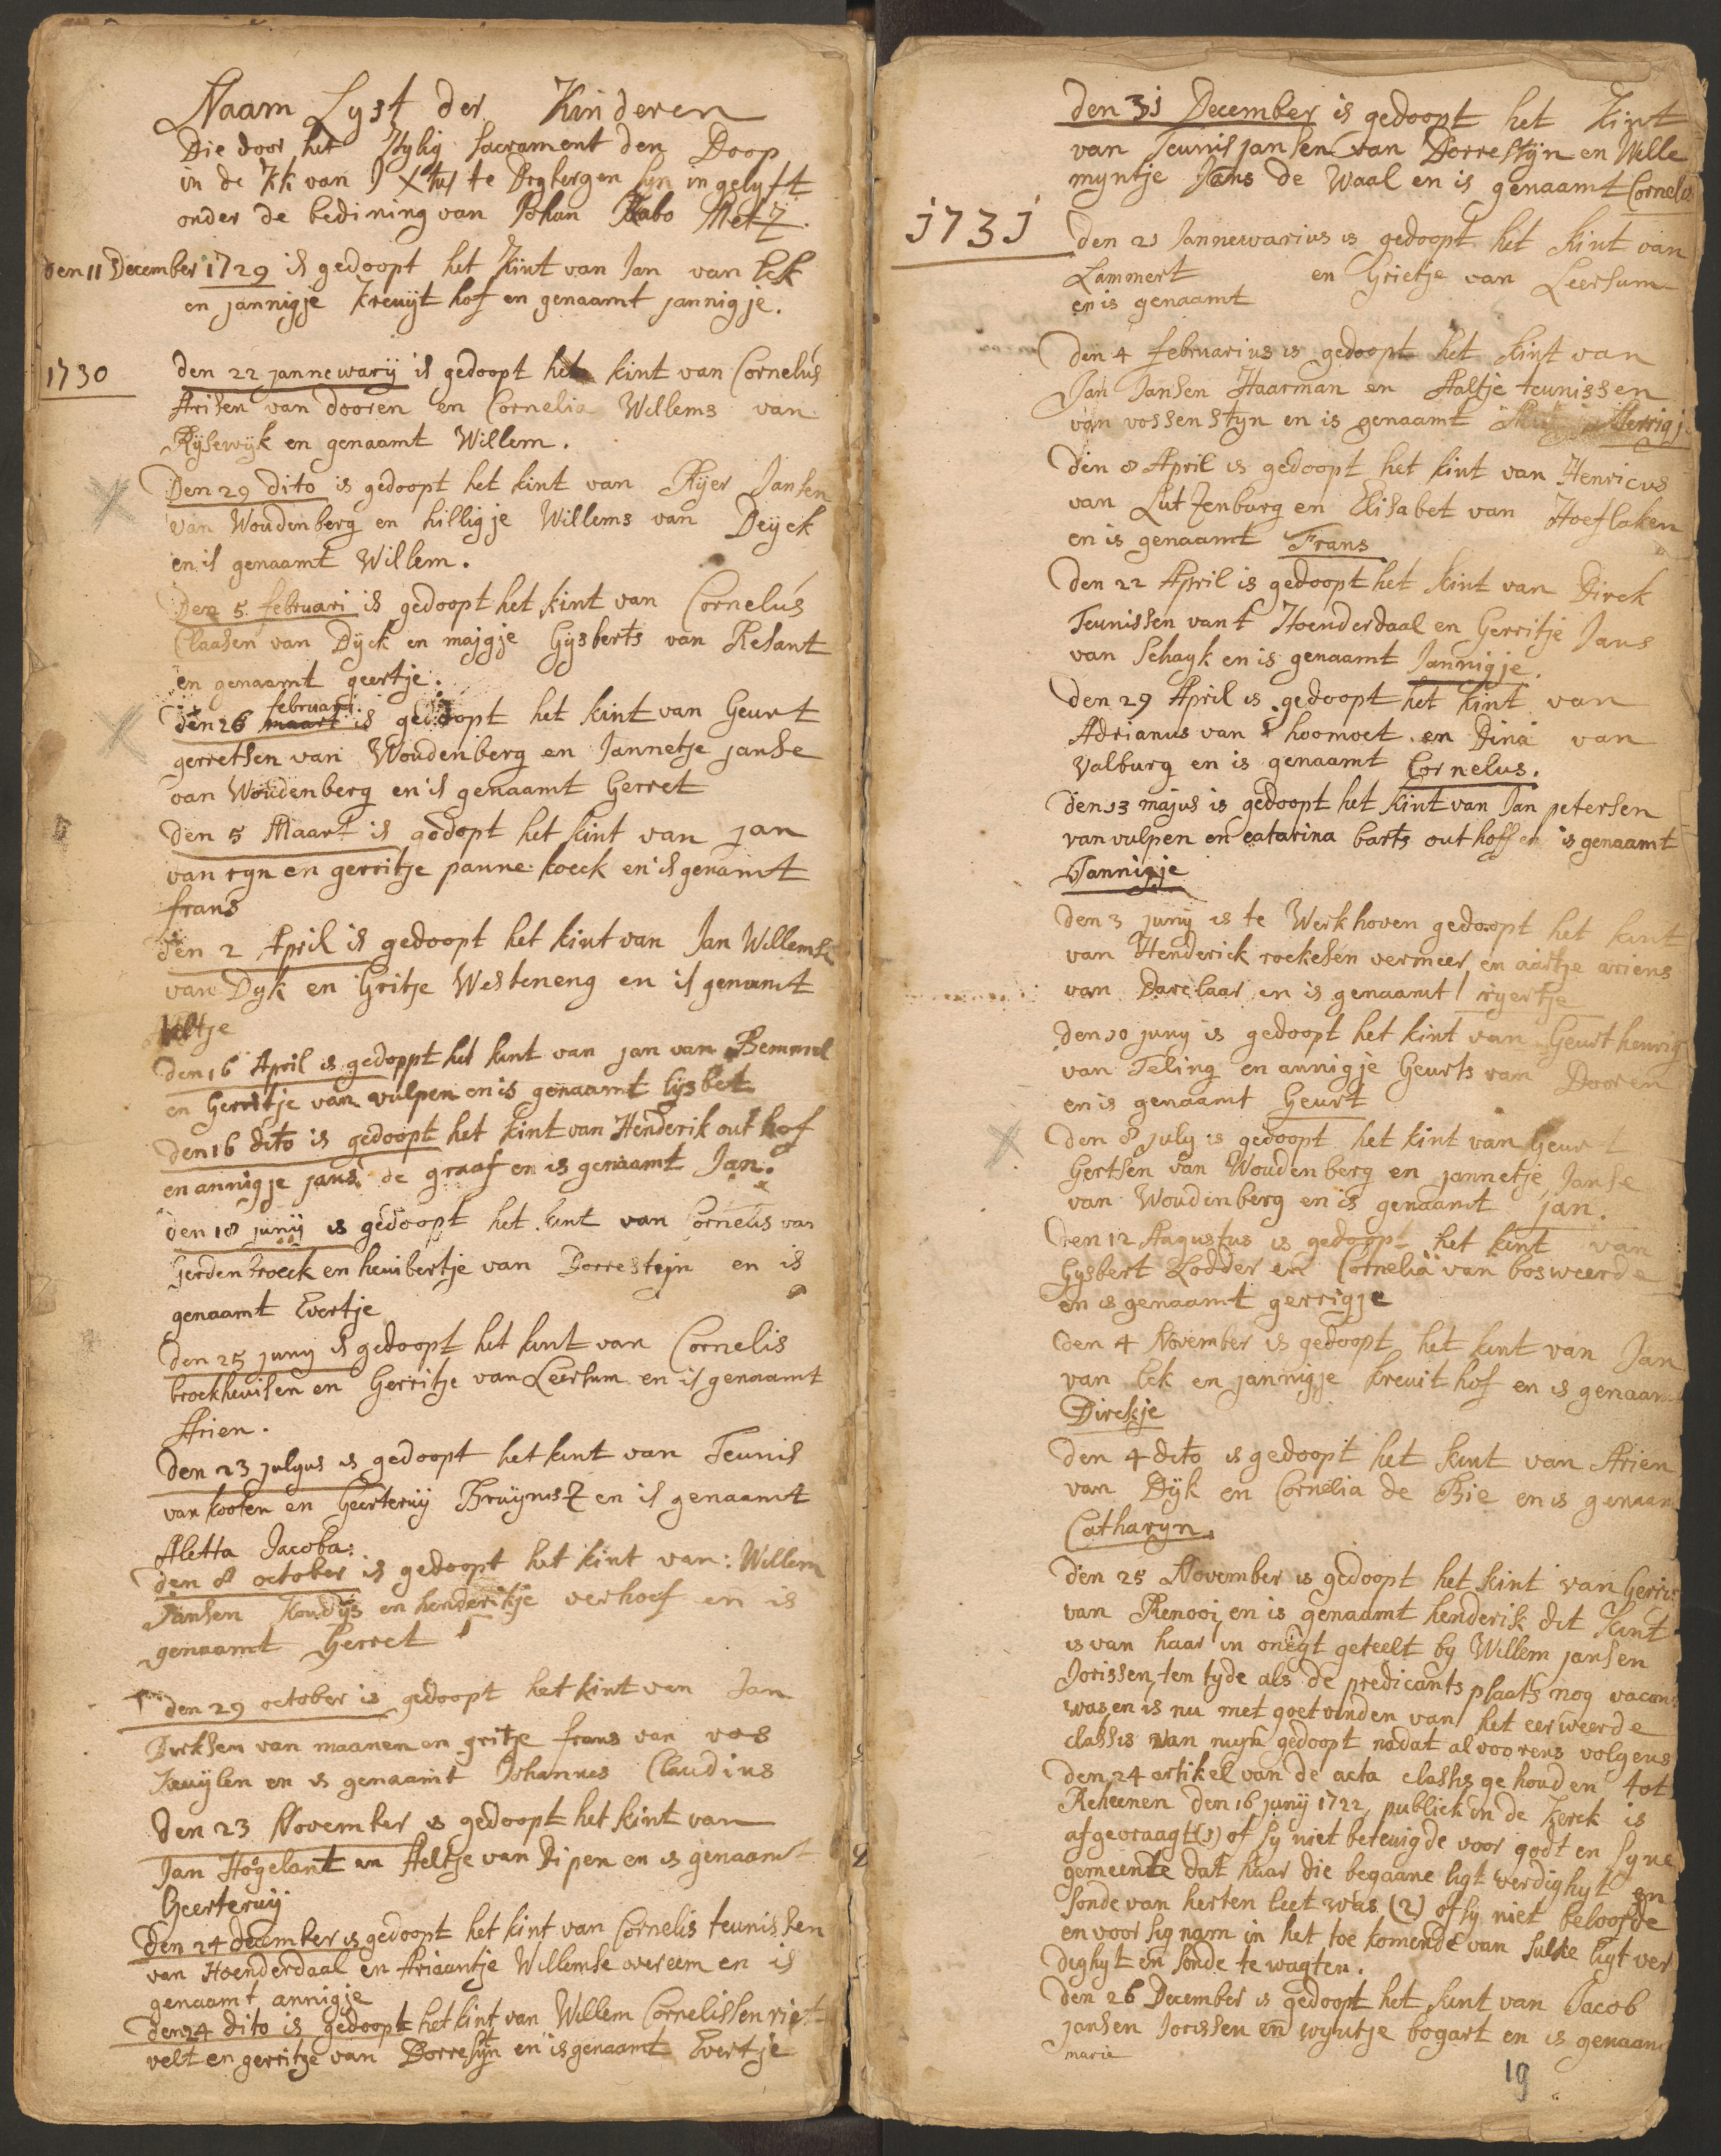 Naam Lyst der Kinderen
Die door het Hylig Sacrament den Doop
in de Kk van J Xtus te Dogbergen syn ingelyft
onder de bedining van Johan Rabo Metz.
den 11 December 1729 is gedoopt het Kint van Jan van Eck
en jannigje Kreuyt hof en genaamt jannigje.
1730
den 22 jannewarij is gedoopt het kint van Cornelús
Arisen van dooren en Cornelia Willems van
Rÿsewÿk en genaamt Willem.
Den 29 dito is gedoopt het kint van Rijer Jansen
van Woudenberg en hilligje Willems van Deÿck
en is genaamt Willem.
Den 5 februari is gedoopt het kint van Cornelús
Claasen van Dÿck en majgje Gÿsberts van Resant
en genaamt geertje.
februari
den 26 maart is gedoopt het kint van Geurt
gerretsen van Woudenberg en Jannetje janse
van Woudenberg en is genaamt Gerret
den 5 Maart is godopt het kint van jan
van ryn en gerritje panne koeck en is genamt
frans
den 2 April is gedoopt het kint van Jan Willemse
van Dyk en Gritje Westeneng en is genamt
Aeltje
den 16 April is gedoppt het kint van jan van Bemmel
en Gerritje van vulpen en is genaamt lijsbet
den 16 dito is gedoopt het kint van Henderik out hof
en annigje jans de graaf en is genaamt Jan.
den 18 junij is gedoopt het kint van Cornelis van
Gerden broeck en heuibertje van Dorrestein en is
genaamt Evertje
den 25 juny is gedoopt het kint van Cornelis
broekheuisen en Gerritje van Leersum en is genaamt
Arien.
den 23 julyus is gedoopt het kint van Teunis
van kooten en Geerteruij Bruÿnisz en is genaamt
Aletta Jacoba:
den 8 october is gedoopt het kint van: Willem
Jansen Koudÿs en henderikje verhoef en is
genaamt Gerret
den 29 october is gedoopt het kint van Jan
Dirksen van maanen en gritje frans van vos
Keuijlen en is genaamt Johannes Claudius
den 23 November is gedoopt het kint van
Jan Hogelant en Aeltje van Dipen en is genaamt
Geerteruij
den 24 december is gedoopt het kint van Cornelis teunissen
van Hoenderdaal en Ariaantje Willemse overeem en is
genaamt annigje
den 24 dito is gedoopt het kint van Willem Cornelissen riet
velt en gerritje van Dorrestÿn en is genaamt Evertje
den 31 December is gedoopt het Kint
van Teunis jansen van Dorrestÿn en Wille
myntje Jans de Waal en is genaamt Cornelis
1731
den 21 Jannewarius is gedoopt het kint van
Lammert en Grietje van Leersum
en is genaamt
den 4 februarius is gedoopt het kint van
Jan Jansen Haarman en Aaltje teunissen
van vossen styn en is genaamt Merrigj
den 8 April is gedoopt het kint van Henricus
van Lutzenburg en Elisabet van Hoeflaken
en is genaamt Frans
den 22 April is gedoopt het kint van Dirck
Teunissen vant Hoenderdaal en Gerritje Jans
van Schayk en is genaamt Jannigje.
den 29 April is gedoopt het kint van
Adrianus van Schoomoet en Dina van
Valburg en is genaamt Cornelus.
den 13 majus is gedoopt het kint van Jan petersen
van vulpen en catarina barts out hoff en is genaamt
Jannigje
den 3 juny is te Werkhoven gedoopt het kint
van Henderick roekesen vermeer en aartje ariens
van Darelaar en is genaamt rijertje
den 10 juny is gedoopt het kint van Geurt henrig
van Teling en annigje Geurts van Dooren
en is genaamt Geurt
den 8 july is gedoopt het kint van Geurt
Gertsen van Woudenberg en jannetje Janse
van Woudenberg en is genaamt jan.
den 12 Augustus is gedoopt het kint van
Gysbert Lodder en Cornelia van bosweerde
en is genaamt gerrigje
den 4 November is gedoopt het kint van Jan
van Eck en jannigje kreuit hof en is genaam
Dirckje
den 4 dito is gedoopt het kint van Arien
van Dÿk en Cornelia de Bie en is genaam
Catharyn.
den 25 November is gedoopt het kint van Gerri
van Renooi, en is genaamt henderik dit kint
is van haar in onegt geteelt by Willem jansen
Jorissen, ten tyde als de predicants plaats nog vacan
was en is nu met goetvinden van het eerweerde
classis van nuys gedoopt nadat alvoorens volgens
den 24 artikel van de acta classis gehouden tot
Reheenen den 16 junij 1722, publick in de Kerck is
afgevraagt (1) of sy niet beteuigde voor godt en syne
gemeente dat haar die begaane ligtverdighyt en
sonde van herten leet was (2) of sy niet beloofde
en voor sig nam in het toekomende van sulke ligt ver
dighyt en sonde te wagten.
den 26 December is gedoopt het kint van Jacob
jansen Jorissen en wyntje bogart en is genaam
marie
19